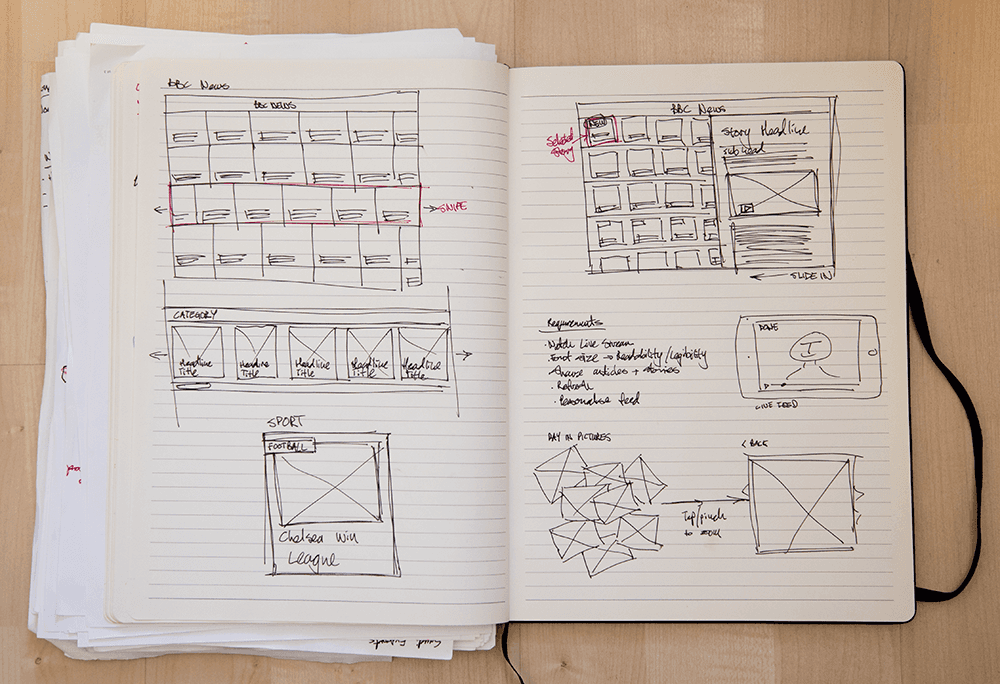 BBC News
BBC NEWS
SWIPE
CATEGORY
Headline Title
Headline Title
Headline Title
Headline Title
Headline Title
SPORT
FOOTBALL
Chelsea Win
League
BBC News
NEW
Selected
Story
Story Headline
Sub head
SLIDE IN
Requirements
· Watch Live Stream
· Font size → Readability/Legibility
· Share articles + stories
· Refresh
· Personalise feed
DONE
LIVE FEED
DAY IN PICTURES
Tap/pinch
to zoom
< BACK